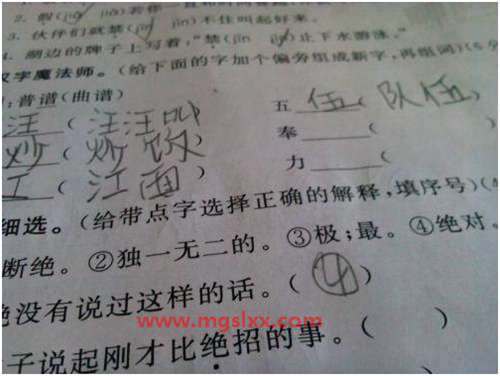 3. 伙伴们就禁(jīn jìn)不住叫起好来。
4. 湖边的牌子上写着,“禁(jīn jìn)止下水游泳。”
汉字魔法师。(给下面的字加个偏旁组成新字,再组词)(6分
:普谱(曲谱)
五 伍 ( 队伍 )
汪 ( 汪汪叫
奉 (
炒 ( 炒饭
力 (
工 ( 江面 )
细选。(给带点字选择正确的解释,填序号)(4
断绝。②独一无二的。③极;最。④绝对。
绝没有说过这样的话。( ④ )
www.mgslxx.com
子说起刚才比绝招的事。( )